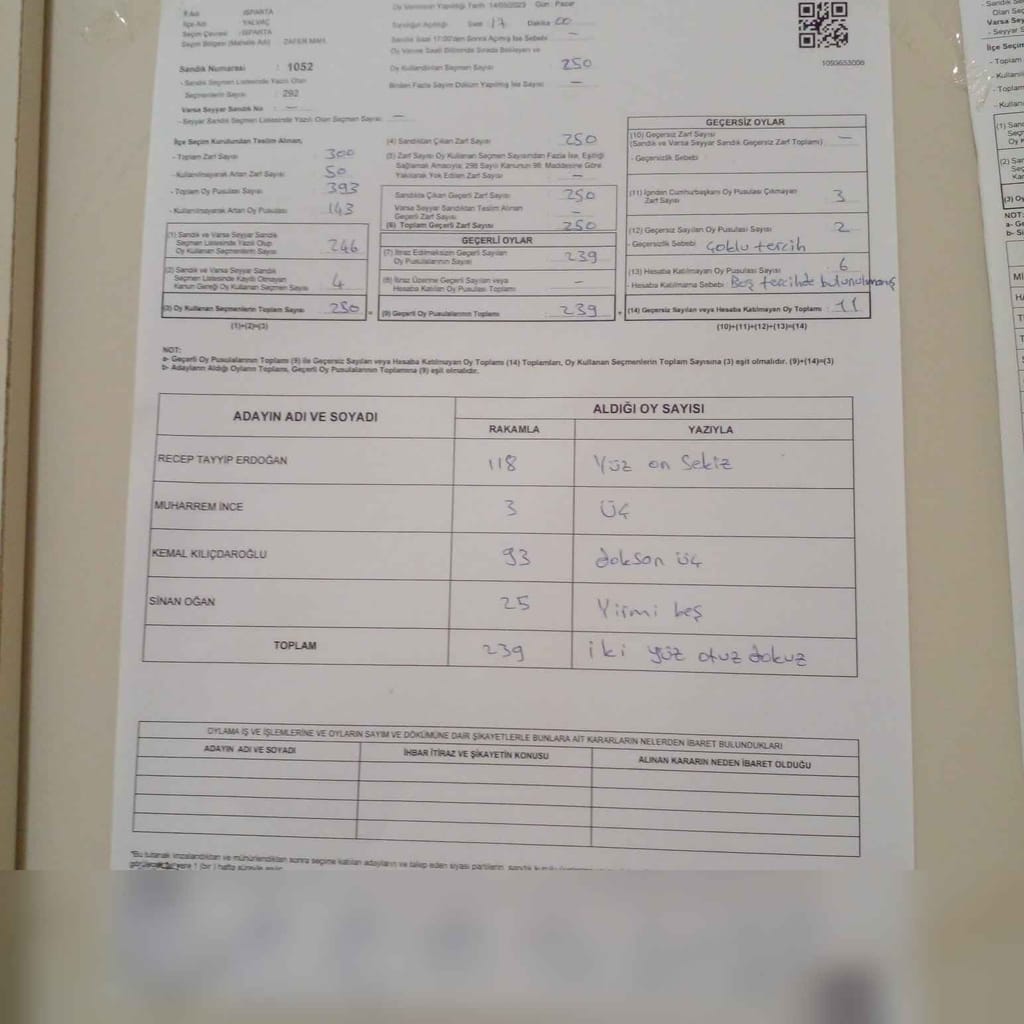 İl Adı : ISPARTA
İlçe Adı : YALVAÇ
Seçim Çevresi : ISPARTA
Seçim Bölgesi (Mahalle Adı) : ZAFER MAH.
Sandık Numarası : 1052
- Sandık Seçmen Listesinde Yazılı Olan
Seçmenlerin Sayısı : 292
Varsa Seyyar Sandık No : —
- Seyyar Sandık Seçmen Listesinde Yazılı Olan Seçmen Sayısı : —
Oy Vermenin Yapıldığı Tarih 14/05/2023 Gün : Pazar
Sandığın Açıldığı Saat 17 Dakika 00
Sandık Saat 17:00'den Sonra Açılmış İse Sebebi —
Oy Verme Saati Bitiminde Sırada Bekleyen ve
Oy Kullandırılan Seçmen Sayısı 250
Birden Fazla Sayım Döküm Yapılmış İse Sayısı : —
1093653006
İlçe Seçim Kurulundan Teslim Alınan,
- Toplam Zarf Sayısı : 300
- Kullanılmayarak Artan Zarf Sayısı : 50
- Toplam Oy Pusulası Sayısı : 393
- Kullanılmayarak Artan Oy Pusulası : 143
(1) Sandık ve Varsa Seyyar Sandık
Seçmen Listesinde Yazılı Olup
Oy Kullanan Seçmenlerin Sayısı : 246
(2) Sandık ve Varsa Seyyar Sandık
Seçmen Listesinde Kayıtlı Olmayan
Kanun Gereği Oy Kullanan Seçmen Sayısı : 4
(3) Oy Kullanan Seçmenlerin Toplam Sayısı : 250
(1)+(2)=(3)
(4) Sandıktan Çıkan Zarf Sayısı : 250
(5) Zarf Sayısı Oy Kullanan Seçmen Sayısından Fazla İse, Eşitliği
Sağlamak Amacıyla; 298 Sayılı Kanunun 98. Maddesine Göre
Yakılarak Yok Edilen Zarf Sayısı : —
Sandıkta Çıkan Geçerli Zarf Sayısı : 250
Varsa Seyyar Sandıktan Teslim Alınan
Geçerli Zarf Sayısı : —
(6) Toplam Geçerli Zarf Sayısı : 250
GEÇERLİ OYLAR
(7) İtiraz Edilmeksizin Geçerli Sayılan
Oy Pusulalarının Sayısı : 239
(8) İtiraz Üzerine Geçerli Sayılan veya
Hesaba Katılan Oy Pusulası Toplamı : —
(9) Geçerli Oy Pusulalarının Toplamı : 239
GEÇERSİZ OYLAR
(10) Geçersiz Zarf Sayısı
(Sandık ve Varsa Seyyar Sandık Geçersiz Zarf Toplamı) : —
- Geçersizlik Sebebi :
(11) İçinden Cumhurbaşkanı Oy Pusulası Çıkmayan
Zarf Sayısı : 3
(12) Geçersiz Sayılan Oy Pusulası Sayısı : 2
- Geçersizlik Sebebi : Çoklu tercih
(13) Hesaba Katılmayan Oy Pusulası Sayısı : 6
- Hesaba Katılmama Sebebi : Boş tercihde bulunulmamış
(14) Geçersiz Sayılan veya Hesaba Katılmayan Oy Toplamı : 11
(10)+(11)+(12)+(13)=(14)
NOT:
a- Geçerli Oy Pusulalarının Toplamı (9) ile Geçersiz Sayılan veya Hesaba Katılmayan Oy Toplamı (14) Toplamları, Oy Kullanan Seçmenlerin Toplam Sayısına (3) eşit olmalıdır. (9)+(14)=(3)
b- Adayların Aldığı Oyların Toplamı, Geçerli Oy Pusulalarının Toplamına (9) eşit olmalıdır.
ADAYIN ADI VE SOYADI
ALDIĞI OY SAYISI
RAKAMLA YAZIYLA
RECEP TAYYİP ERDOĞAN 118 Yüz on sekiz
MUHARREM İNCE 3 Üç
KEMAL KILIÇDAROĞLU 93 doksan üç
SİNAN OĞAN 25 Yirmi beş
TOPLAM 239 iki yüz otuz dokuz
OYLAMA İŞ VE İŞLEMLERİNE VE OYLARIN SAYIM VE DÖKÜMÜNE DAİR ŞİKAYETLERLE BUNLARA AİT KARARLARIN NELERDEN İBARET BULUNDUKLARI
ADAYIN ADI VE SOYADI İHBAR İTİRAZ VE ŞİKAYETİN KONUSU ALINAN KARARIN NEDEN İBARET OLDUĞU
"Bu tutanak imzalandıktan ve mühürlendikten sonra seçime katılan adayların ve talep eden siyasi partilerin, sandık